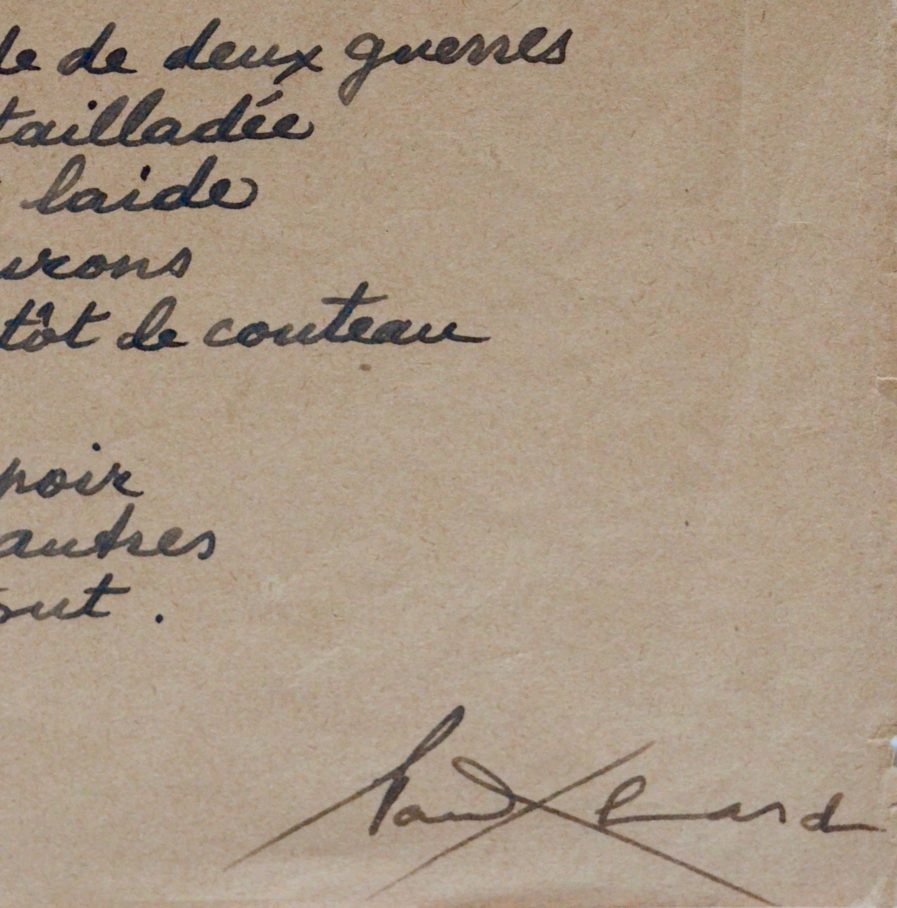 de de deux guerres
tailladée
laide
virons
tôt de couteau
poir
autres
out.
Paul Eluard